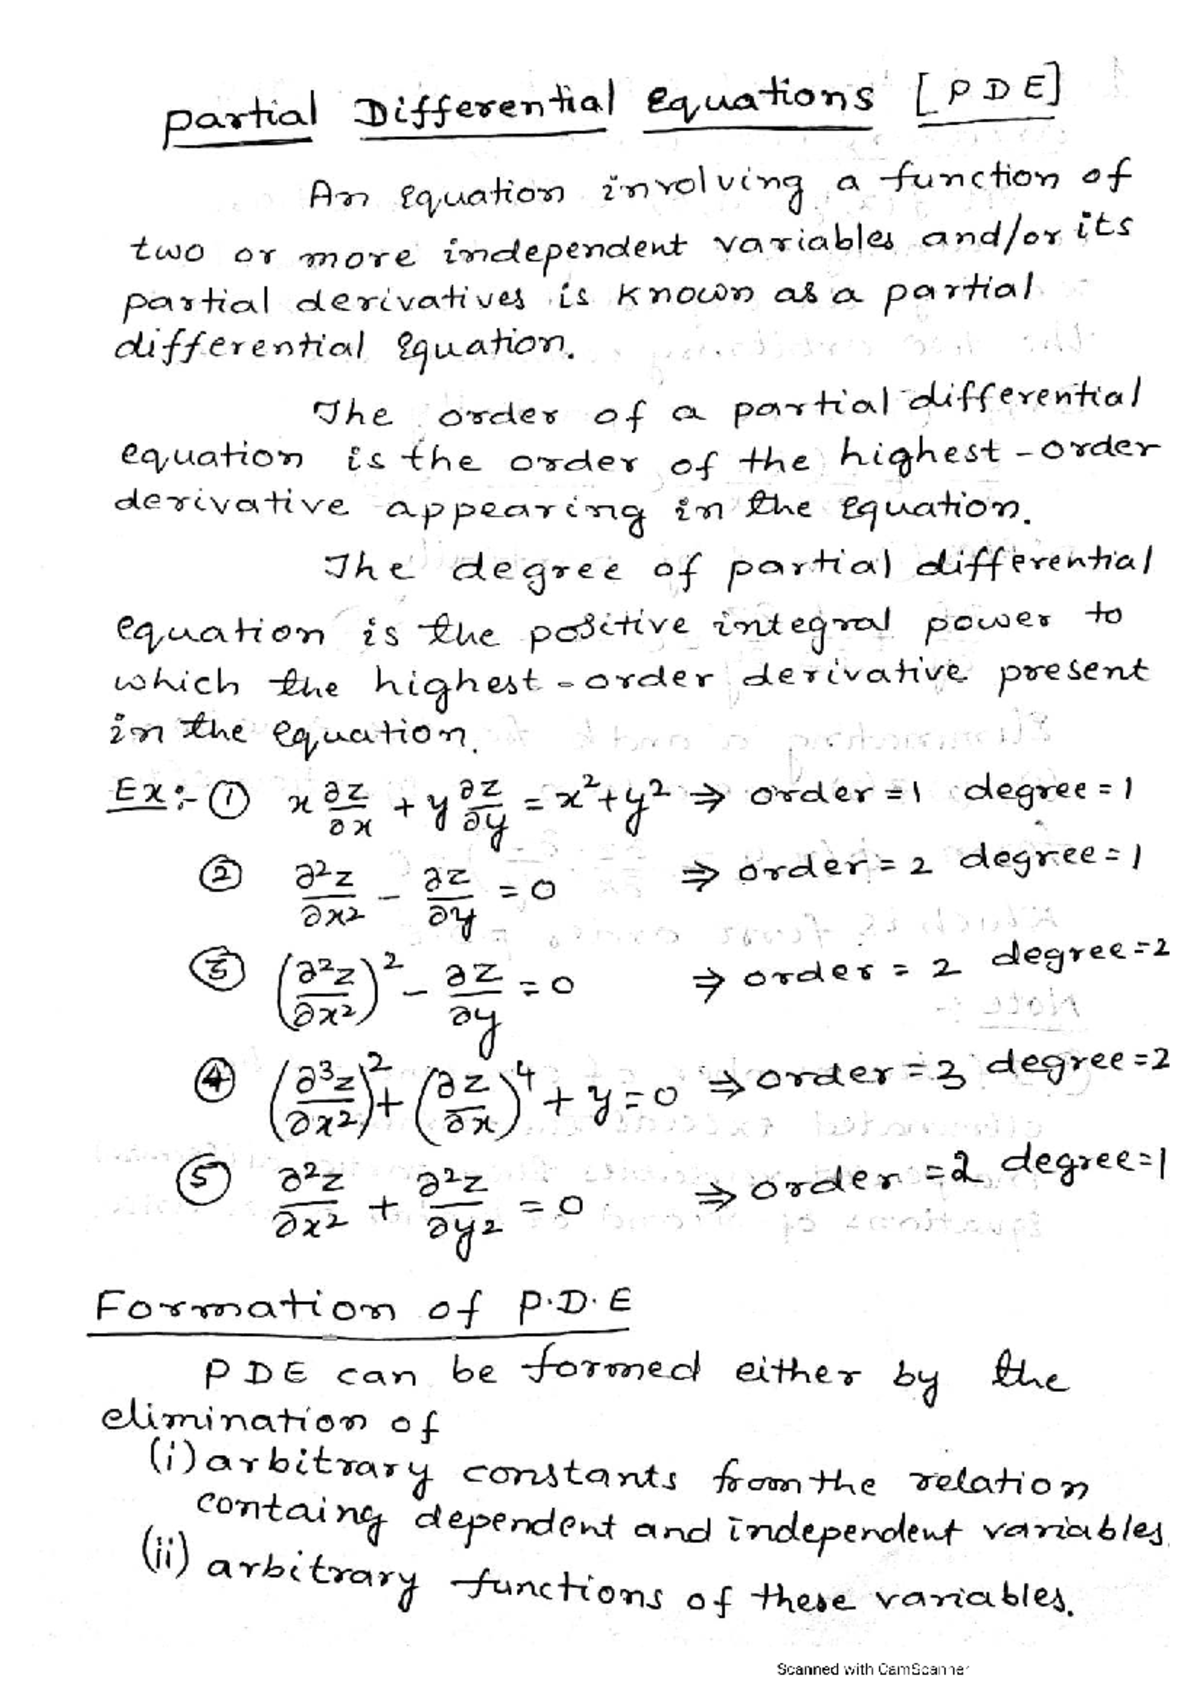 Partial Differential Equations [PDE]
An Equation involving a function of
two or more independent variables and/or its
partial derivatives is known as a partial
differential Equation.
The order of a partial differential
equation is the order of the highest-order
derivative appearing in the Equation.
The degree of partial differential
equation is the positive integral power to
which the highest-order derivative present
in the equation.
Ex:- ① x ∂z/∂x + y ∂z/∂y = x²+y² ⇒ order=1 degree=1
② ∂²z/∂x² - ∂z/∂y = 0 ⇒ order=2 degree=1
③ (∂²z/∂x²)² - ∂z/∂y = 0 ⇒ order=2 degree=2
④ (∂³z/∂x²)² + (∂z/∂x)⁴ + y = 0 ⇒ order=3 degree=2
⑤ ∂²z/∂x² + ∂²z/∂y² = 0 ⇒ order=2 degree=1
Formation of P.D.E
PDE can be formed either by the
elimination of
(i) arbitrary constants from the relation
containg dependent and independent variables
(ii) arbitrary functions of these variables.
Scanned with CamScanner